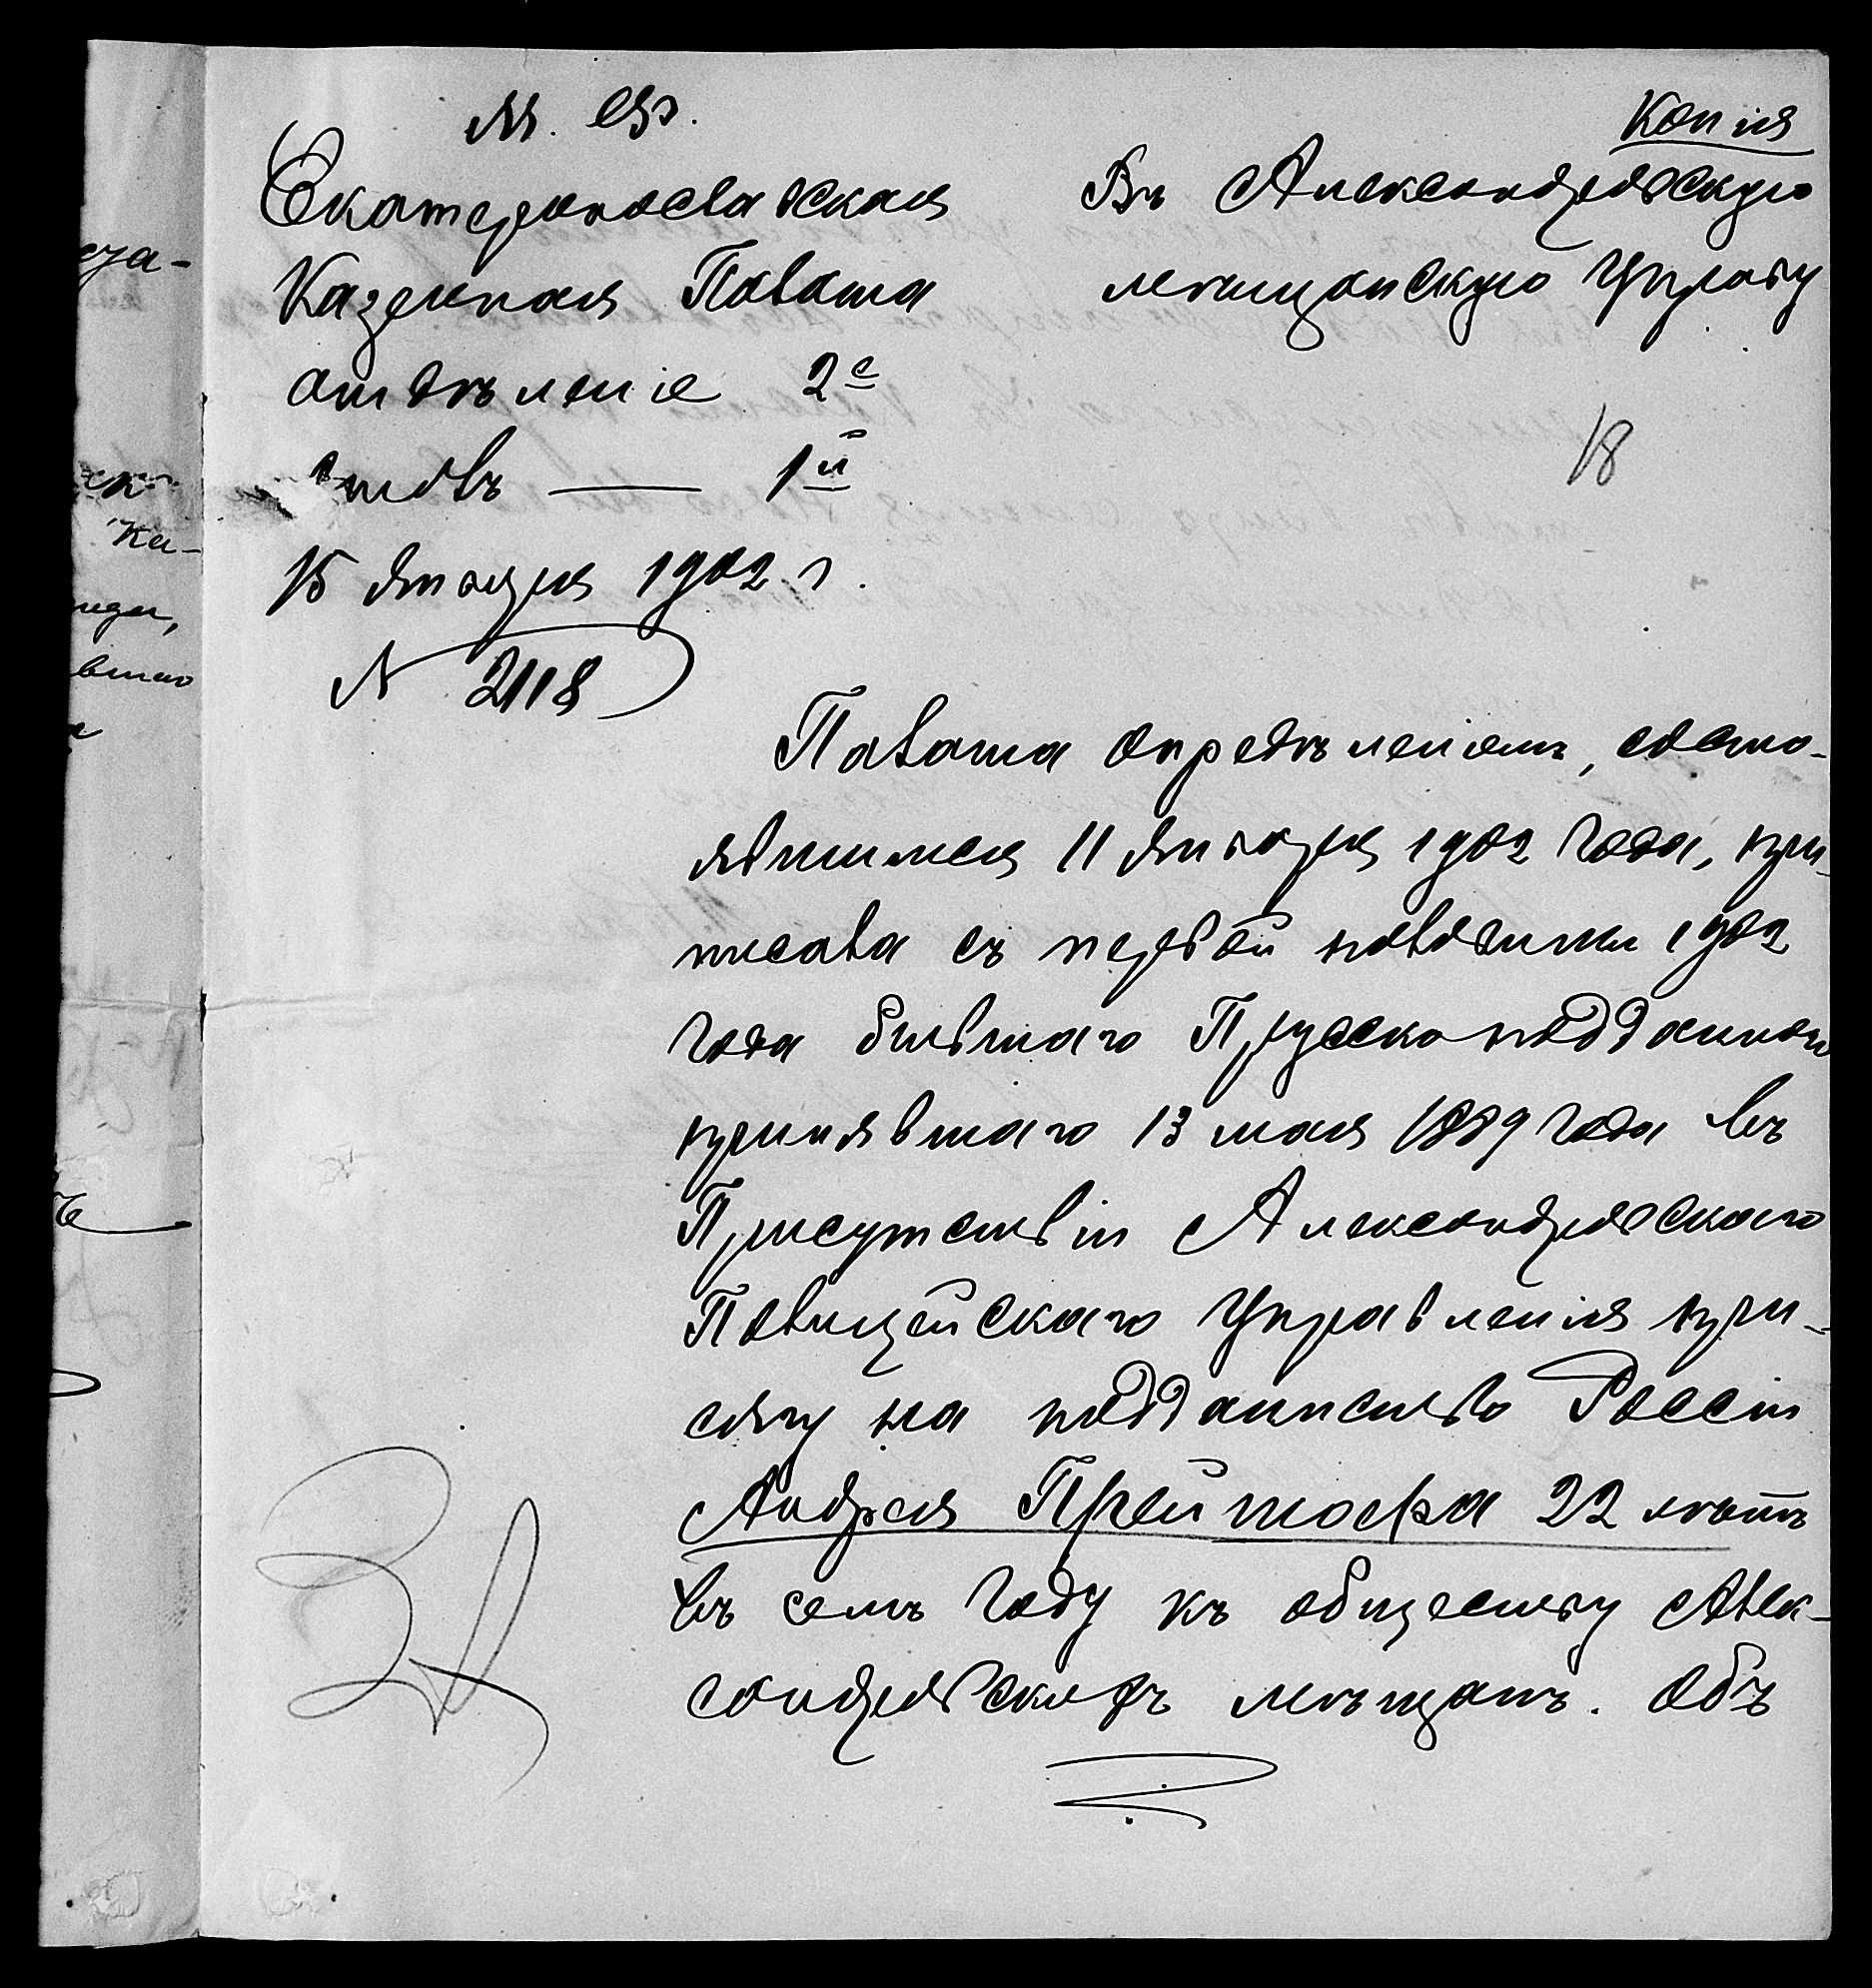 Копія
М. Ф.
Екатеринославская
Казенная Палата
отдѣленіе 2е
столъ — 1й
15 января 1902 г.
N 2118
Въ Александровскую
мѣщанскую Управу
18
Палата опредѣленіемъ, состо-
явшимся 11 января 1902 года, при-
писала съ первой половины 1902
года бывшаго Прусскоподданнаго
принявшаго 13 мая 1889 года въ
Присутствіи Александровскаго
Полицейскаго Управленія при-
сягу на подданство Россіи
Андрея Прейшофа 22 лѣтъ
въ семъ году къ обществу Алек-
сандровскихъ мѣщанъ. Объ